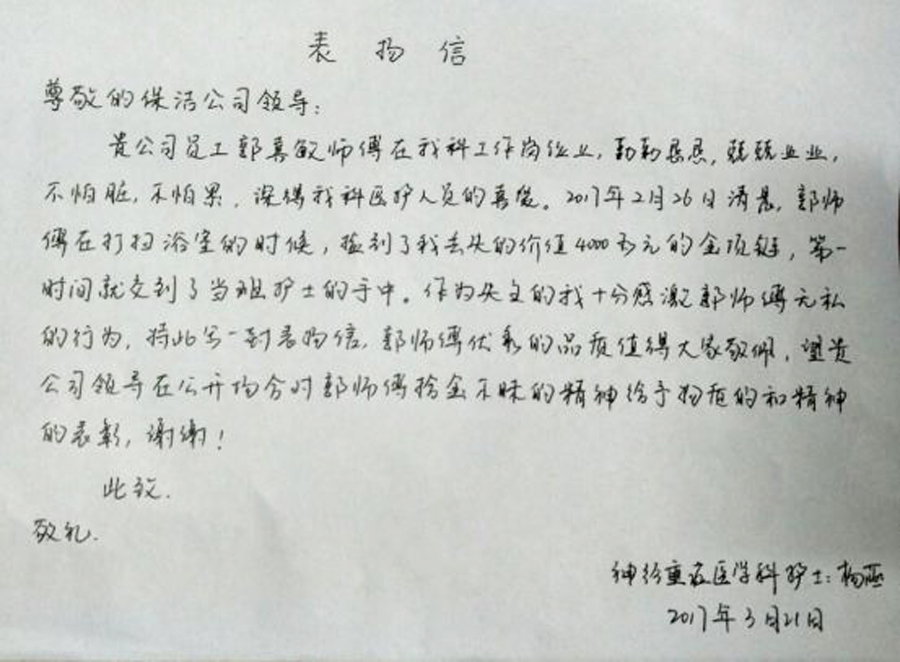 表扬信
尊敬的保洁公司领导:
贵公司员工郭喜敏师傅在我科工作岗位业,勤勤恳恳,兢兢业业,
不怕脏,不怕累,深得我科医护人员的喜爱。2017年2月26日清晨,郭师
傅在打扫浴室的时候,捡到了我丢失的价值4000多元的金项链,第一
时间就交到了当班护士的手中。作为失主的我十分感激郭师傅无私
的行为,特此写一封表扬信,郭师傅优秀的品质值得大家敬佩,望贵
公司领导在公开场合对郭师傅拾金不昧的精神给予物质的和精神
的表彰,谢谢!
此致.
敬礼.
神经重症医学科护士:杨
2017年3月21日